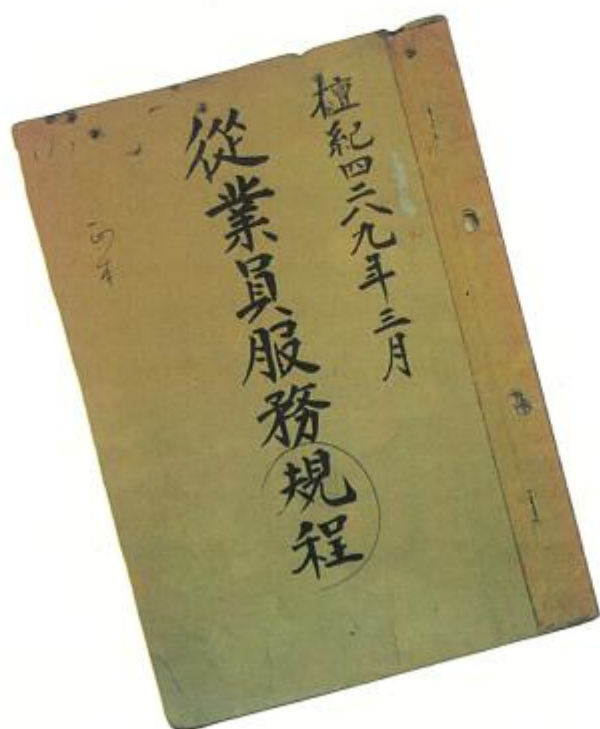 檀紀四二八九年三月
從業員服務規程